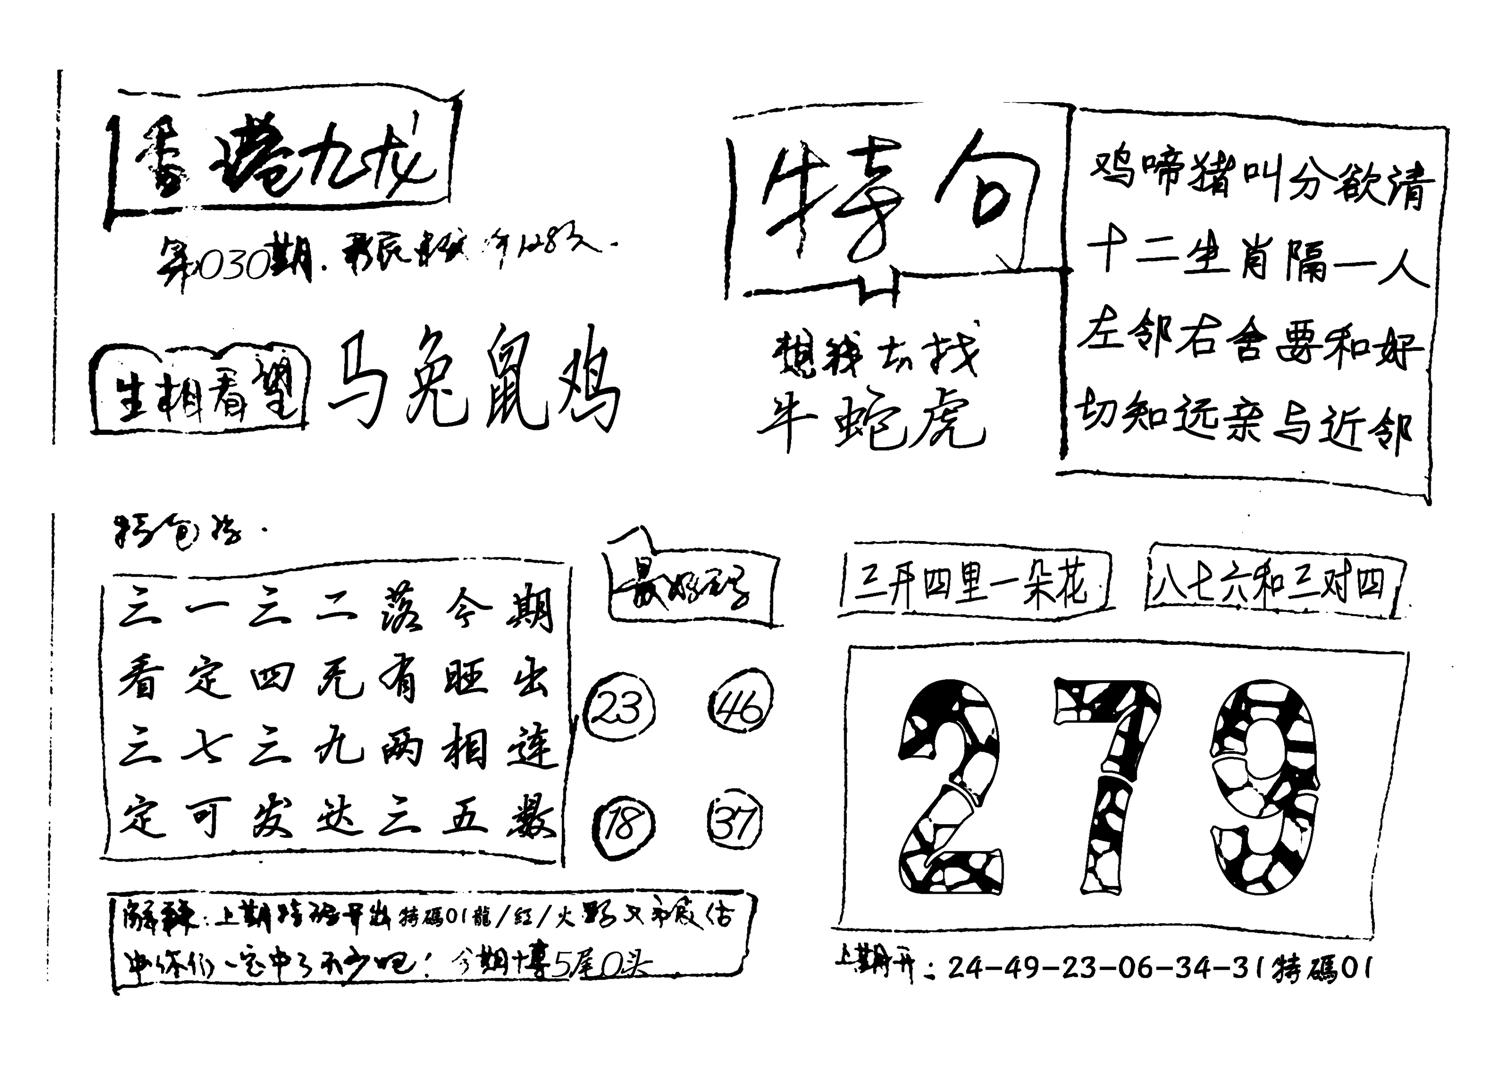 香港九龙
第030期.
生相看望
马兔鼠鸡
特句
想我去找
牛蛇虎
鸡啼猪叫分欲请
十二生肖隔一人
左邻右舍要和好
切知远亲与近邻
三一三二落今期
看定四无有旺出
三七三九两相连
定可发达三五数
最好码
23 46
18 37
三开四里一朵花
八七六和三对四
279
解释：上期特码开出特碼01龍/红/火
中你们一定中了不少吧！今期十博5尾0头
上期开：24-49-23-06-34-31特碼01